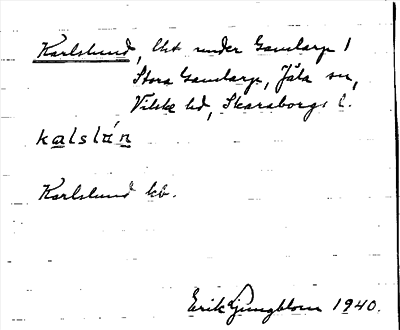 Karlslund, lht under Gamlarp 1
Stora Gamlarp, Jäla sn,
Vilske hd, Skaraborgs l.
kalslán
Karlslund kb.
Erik Ljungblom 1940.